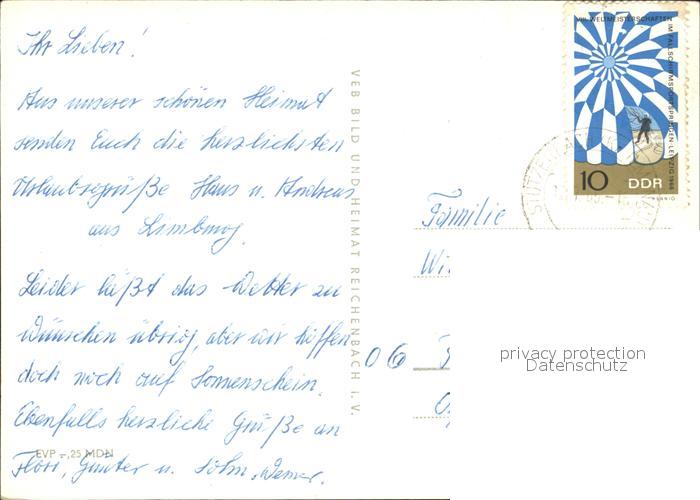 Ihr Lieben!
Aus unserer schönen Heimat
senden Euch die herzlichsten
Urlaubsgrüße Hans u. Andreas
aus Limburg.
Leider läßt das Wetter zu
wünschen übrig, aber wir hoffen
doch noch auf Sonnenschein.
Ebenfalls herzliche Grüße an
Günter u. Sohn Werner.
EVP -,25 MDN
VEB BILD UND HEIMAT REICHENBACH i. V.
VIII. WELTMEISTERSCHAFTEN
IM FALLSCHIRMSPORTSPRINGEN · LEIPZIG 1966
10 DDR
Familie
06
privacy protection
Datenschutz